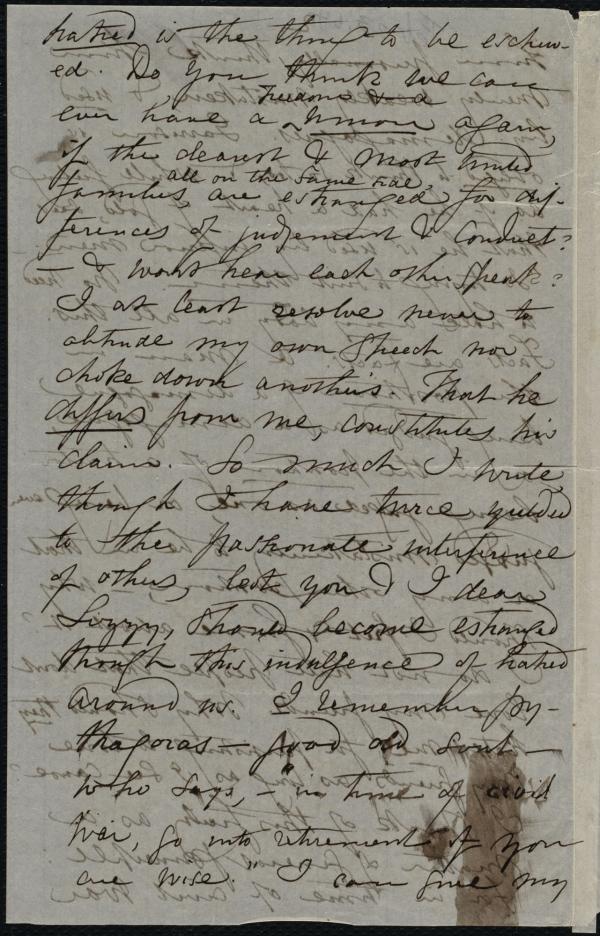 hatred is the thing to be eschew-
ed. Do you think we can
freedom & a
ever have a Union again,
if the dearest & most united
all on the same side,
families, are estranged for dif-
ferences of judgement & conduct?
— & wont hear each other speak?
I at least resolve never to
obtrude my own speech nor
choke down another's. That he
differs from me, constitutes his
claim. So much I write,
though I have twice yielded
to the passionate interference
of others, lest you & I dear
Lizzy, should become estranged
though this indulgence of hatred
around us. I remember Py-
thagoras — good old soul —
who says, — "in time of civil
War, go into retirement if you
are wise." I can give my